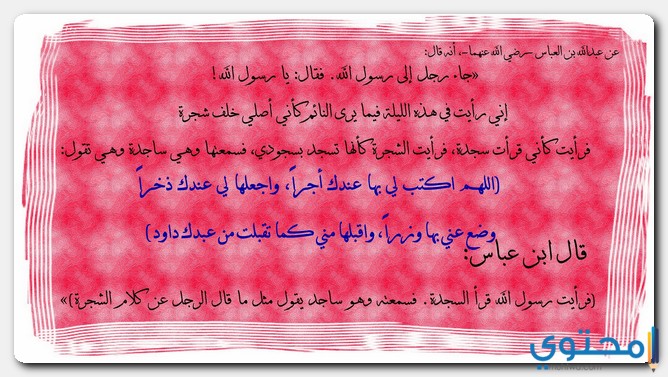 عن عبدالله بن العباس -رضي الله عنهما-، أنه قال:
«جاء رجل إلى رسول الله. فقال: يا رسول الله!
إني رأيت في هذه الليلة فيما يرى النائم كأني أصلي خلف شجرة
فرأيت كأني قرأت سجدة، فرأيت الشجرة كأنها تسجد بسجودي، فسمعتها وهي ساجدة وهي تقول:
(اللهم اكتب لي بها عندك أجراً، واجعلها لي عندك ذخراً
وضع عني بها وزراً، واقبلها مني كما تقبلت من عبدك داود)
قال ابن عباس:
(فرأيت رسول الله قرأ السجدة. فسمعته وهو ساجد يقول مثل ما قال الرجل عن كلام الشجرة)»
محتوى